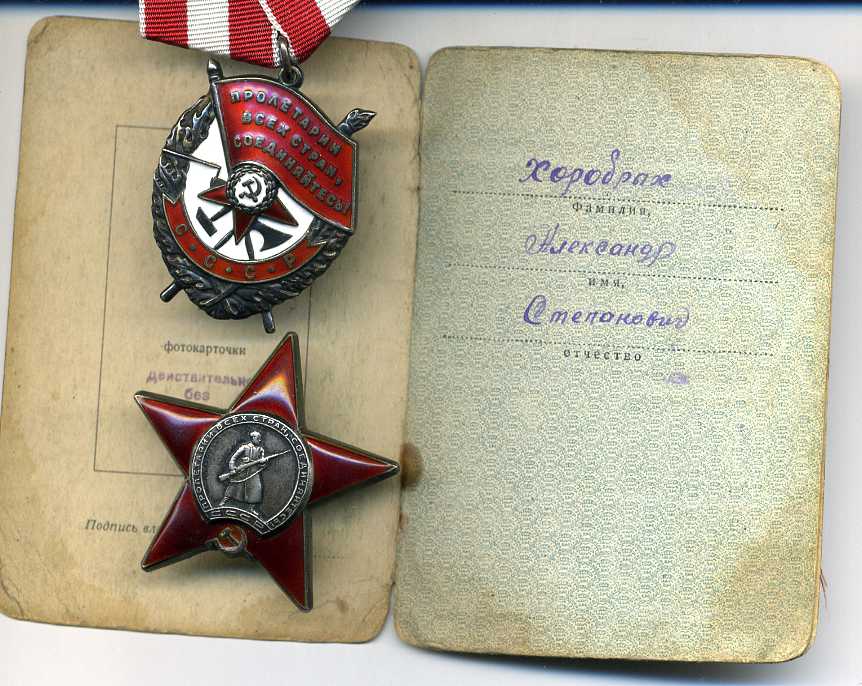 ПРОЛЕТАРИИ
ВСЕХ СТРАН,
СОЕДИНЯЙТЕСЬ!
С·С·С·Р
фотокарточки
действительно
без
ПРОЛЕТАРИИ ВСЕХ СТРАН, СОЕДИНЯЙТЕСЬ!
СССР
Подпись вл
Хоробрых
Фамилия,
Александр
имя,
Степанович
отчество